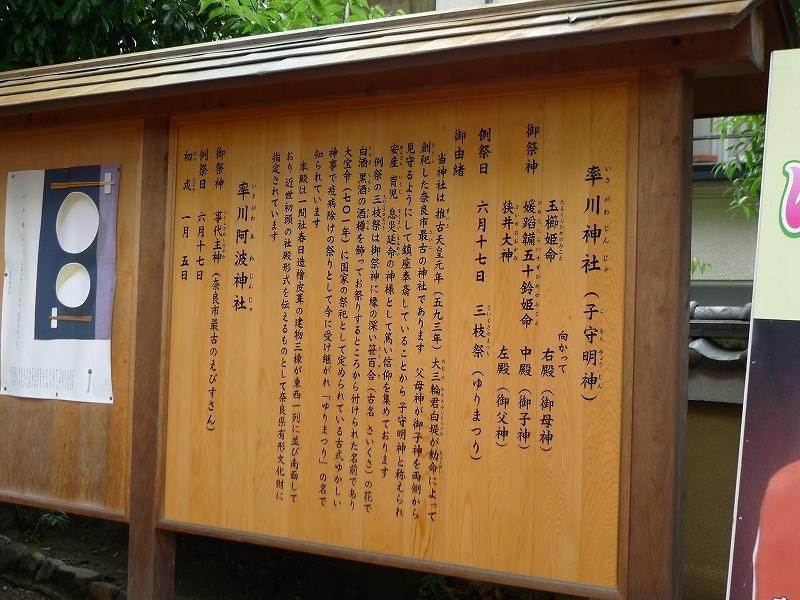 率川神社（子守明神）
いさがわじんじゃ
こもりみょうじん
御祭神
向かって
玉櫛姫命　右殿（御母神）
たまくしひめのみこと
媛蹈韛五十鈴姫命　中殿（御子神）
ひめたたらいすずひめのみこと
狭井大神　左殿（御父神）
さいのおおかみ
例祭日　六月十七日　三枝祭（ゆりまつり）
さいくさのまつり
御由緒
当神社は　推古天皇元年（五九三年）　大三輪君白堤が勅命によって
創祀した奈良市最古の神社であります　父母神が御子神を両側から
見守るようにして鎮座奉斎していることから　子守明神と称えられ
安産　育児　息災延命の神様として篤い信仰を集めております
例祭の三枝祭は御祭神に縁の深い笹百合（古名　さいくさ）の花で
白酒　黒酒の酒樽を飾ってお祭りするところから付けられた名前であり
大宝令（七〇一年）に国家の祭祀として定められている古式ゆかしい
神事で疫病除けの祭りとして今に受け継がれ「ゆりまつり」の名で
知られています
本殿は一間社春日造檜皮葺の建物三棟が東西一列に並び南面して
おり　近世初頭の社殿形式を伝えるものとして奈良県有形文化財に
指定されています
率川阿波神社
いさがわあわじんじゃ
御祭神　事代主神（奈良市最古のえびすさん）
例祭日　六月十七日
初戎　一月　五日